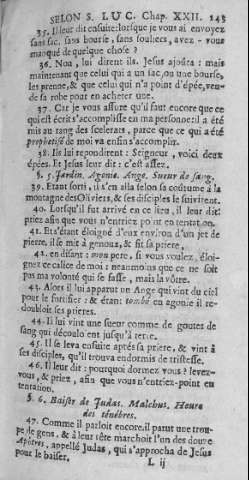 SELON S. LUC. Chap. XXII. 243
35. Il leur dit ensuite: lorsque je vous ai envoyez
sans sac, sans bourse, sans souliers, avez-vous
manqué de quelque chose?
36. Non, lui dirent-ils. Jesus ajoûta: mais
maintenant que celui qui a un sac, ou une bourse,
les prenne, & que celui qui n'a point d'épée, ven-
de sa robe pour en acheter une.
37. Car je vous assure qu'il faut encore que ce
qui est écrit s'accomplisse en ma personne: il a été
mis au rang des scelerats, parce que ce qui a été
prophetisé de moi va enfin s'accomplir.
38. Ils lui repondirent: Seigneur, voici deux
épées. Et Jesus leur dit: c'est assez.
§. 5. Jardin. Agonie. Ange. Sueur de sang.
39. Etant sorti, il s'en alla selon sa coûtume à la
montagne des Oliviers, & ses disciples le suivirent.
40. Lorsqu'il fut arrivé en ce lieu, il leur dit:
priez afin que vous n'entriez point en tentation.
41. Et s'étant éloigné d'eux environ d'un jet de
pierre, il se mit à genoux, & fit sa priere,
42. en disant: mon pere, si vous voulez, éloi-
gnez ce calice de moi: neanmoins que ce ne soit
pas ma volonté qui se fasse, mais la vôtre.
43. Alors il lui apparut un Ange qui vint du ciel
pour le fortifier: & étant tombé en agonie il re-
doubloit ses prieres.
44. Il lui vint une sueur comme de goutes de
sang qui découloient jusqu'à terre.
45. Il se leva ensuite aprés sa priere, & vint à
ses disciples, qu'il trouva endormis de tristesse.
46. Il leur dit: pourquoi dormez vous? levez-
vous, & priez, afin que vous n'entriez point en
tentation.
§. 6. Baiser de Judas. Malchus. Heure
des ténébres.
47. Comme il parloit encore, il parut une trou-
pe de gens, & à leur tête marchoit l'un des douze
Apôtres, appellé Judas, qui s'approcha de Jesus
pour le baiser.
L ij